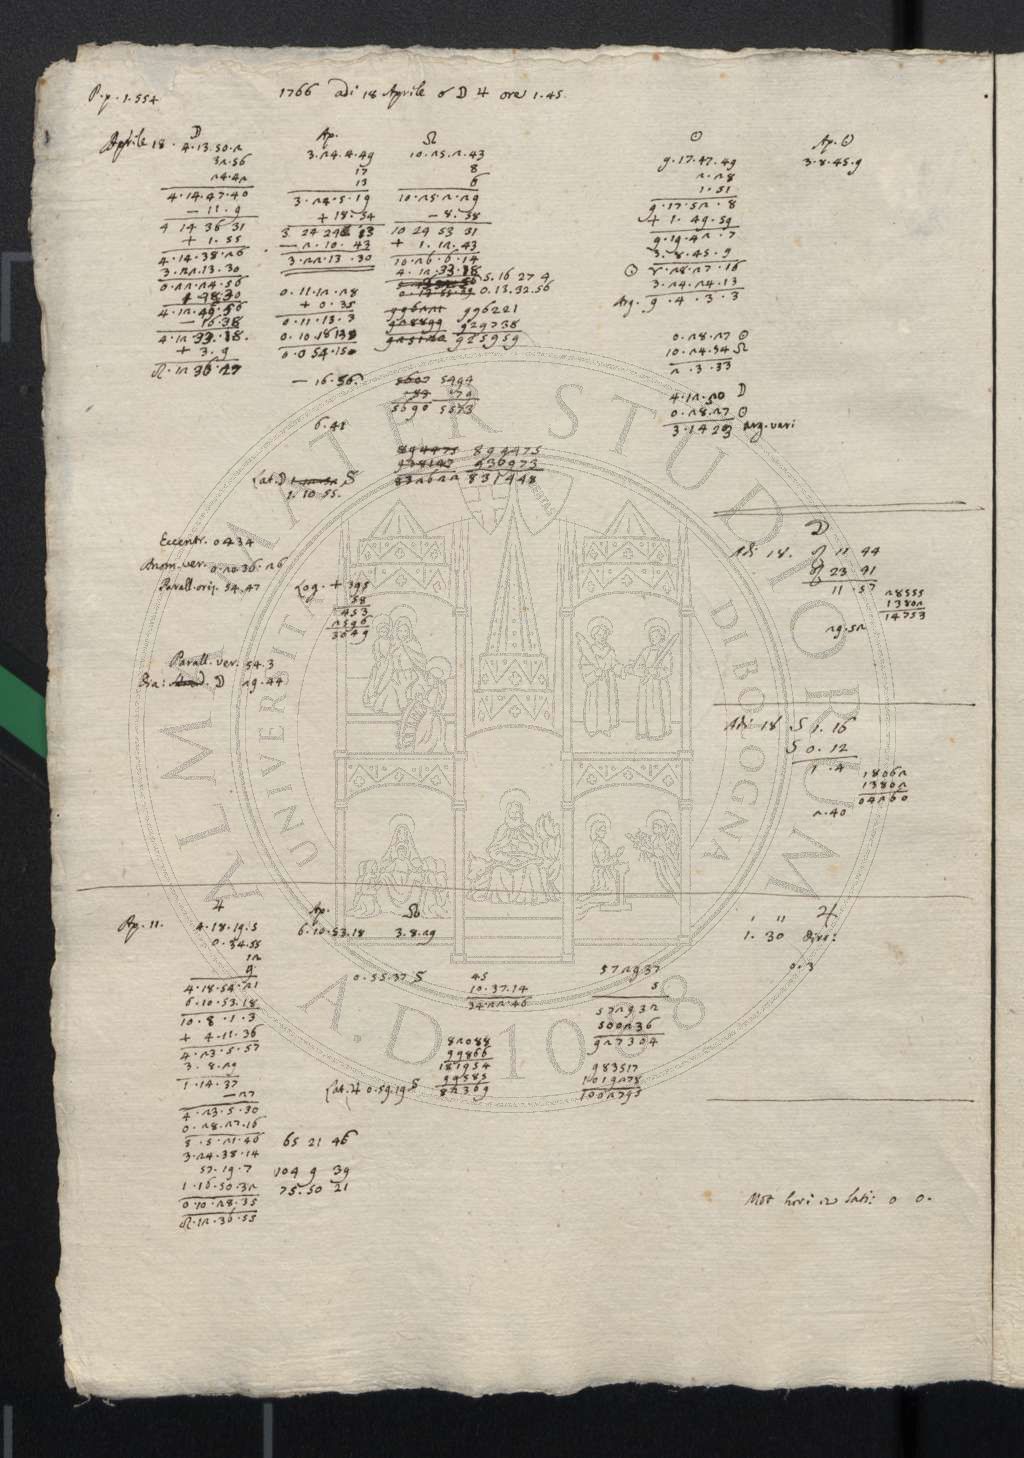 P.p. 1.554
1766 adi 18 Aprile ☌ ☽ ♃ ore 1.45.
Aprile 18. ☽ Ap. ☊ ☉ Ap. ☉
4.13.50.2 3.24.4.49 10.25.2.43 9.17.47.49 3.8.45.9
32.56 17 8 2.28
24.42 13 6 1.51
4.14.47.40 3.24.5.19 10.25.2.29 9.17.52.8
— 11.9 + 18.54 — 8.58 + 1.49.59
4 14 36 31 10 24 53 31 9.19.42.7
+ 1.55 — 2.10.43 + 1.12.43 3.8.45.9
4.14.38.26 3.22.13.30 10.26.6.14 ☉ ♈.28.27.16
3.22.13.30 3.24.24.13
0.22.24.56 0.11.12.28 0.13.32.56 Arg. 9.4.3.3
4.12.49.56 + 0.35 996221
— 16.38 0.11.13.3 929738 0.28.27 ☉
4.12.33.18. 925959 10.24.54 ☊
+ 3.9 0.0 54.15 2.3.33
♌.12 36 27
— 16.56. 5494 4.12.50 ☽
79 0.28.27 ☉
6.41 5690 5573 3.14 23 Arg. vari
894475 894475
936973
Lat. ☽ S 831448
1. 10 55.
Eccentr. 0434
Anom. ver. 0.20 36.26
Parall. oriz. 54.47 Log. + 395
58
453
2596
3049
Parall. ver. 54.3
Dia: ☽ 29.44
☽
Adi 18. 11 44
23 91
11.57
28555
13802
14753
29.52
Adi 18 S 1.16
S 0.12
1.4
18062
13802
04260
2.40
♃ Ap. ☊
Ap. 11. 4.18.19.5 6.10.53.18 3.8.29
0.34.55
12
9
4.18.54.21
6.10.53.18
10.8.1.3
+ 4.11.36
4.23.5.57
3.8.29
1.14.37
— 27
4.23.5.30
0.28.27.16
3.24.38.14
57.19.7
1.16.50.32
0.10.28.35
♌.12.36.55
0.55.37 S 45
10.37.14
34.22.46
572937
5
572932
500236
927304
82088
99866
181954
99585
82369
983517
1019278
1002795
Lat. ♃ 0.59.19 S
65 21 46
104 9 39
75.50 21
' '' ♃
1.30 Dire:
0.3
Mot. hori in lati: 0 0.
ALMA MATER STUDIORUM
UNIVERSITÀ DI BOLOGNA
A.D. 1088